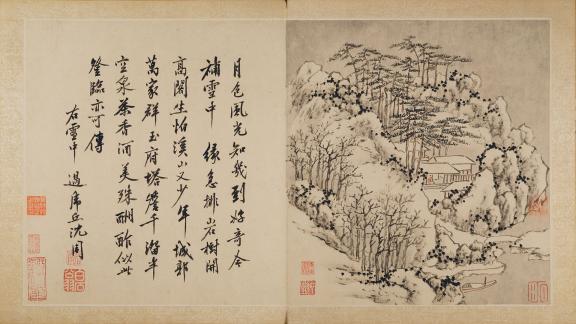 月色風光知幾到好奇今
補雪中緣急排岩樹開
高閣生怕溪山又少年城郭
萬家群玉府塔簷千溜半
空泉茶香酒美殊酬酢似此
登臨亦可傳
右雪中過虎丘沈周